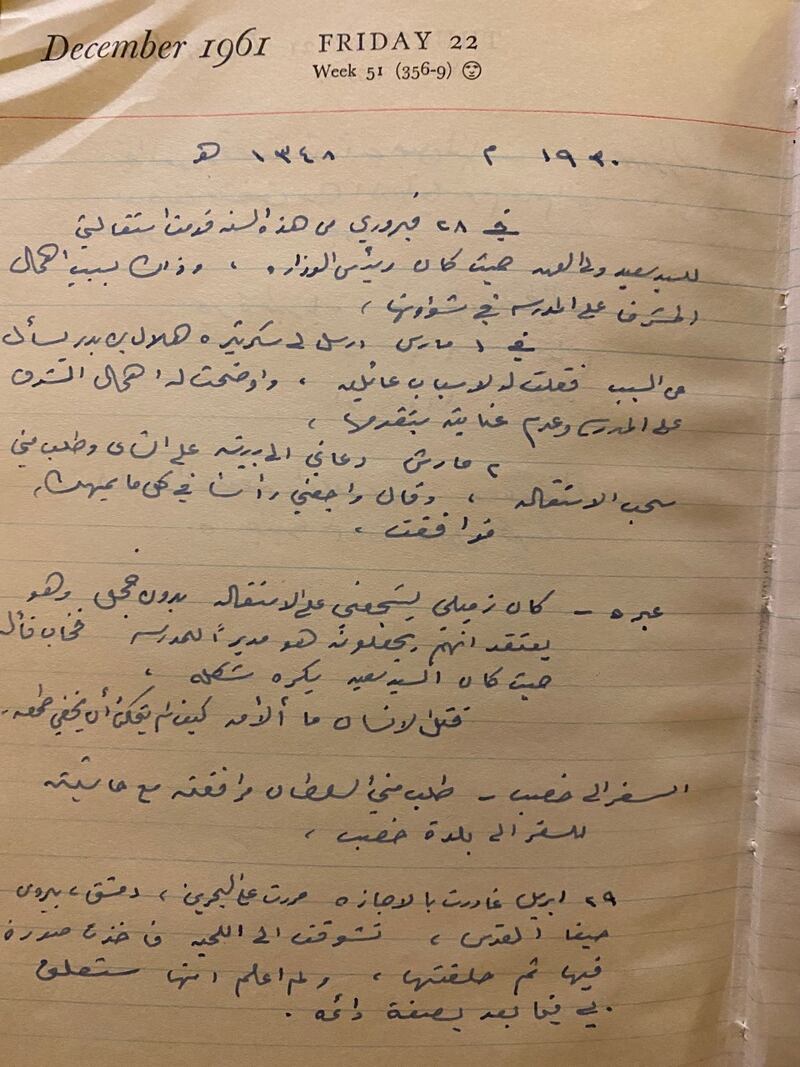 December 1961 FRIDAY 22
Week 51 (356-9)
١٩٣٠ م ١٣٤٨ هـ
في ٢٨ فبروري من هذه السنه قدمت استقالتي
للسيد سعيد ولي العهد حيث كان رئيس الوزاره ، وذلك بسبب اهمال
المشرف على المدرسه في شؤونها ،
في ١ مارس ارسل لي سكرتيره هلال بن بدر يسأل
عن السبب فقلت له لاسباب عائليه ، واوضحت له اهمال المشرف
على المدرسه وعدم عنايته بتقدمها ،
٢ مارس دعاني الى بيته على الشاى وطلب مني
سحب الاستقاله ، وقال راجعني رأسا في كل ما يهمك ،
فوافقت ،
عبره - كان زميلي يشجعني على الاستقاله بدون خجل وهو
يعتقد انهم يجعلونه هو مديرًا للمدرسه فخاب فأله
حيث كان السيد سعيد يكره شكله ،
قتل الانسان ما ألأمه كيف لم يتمكن أن يخفي طمعه ،
السفر الى خصب - طلب مني السلطان مرافقته مع حاشيته
للسفر الى بلدة خصب ،
٢٩ ابريل غادرت بالاجازه مررت على البحرين ، دمشق ، بيروت
حيفا القدس ، تشوقت الى اللحيه فاخذت صورة
فيها ثم حلقتها ، ولم اعلم انها ستعلق
بي فيما بعد بصفة دائمه .